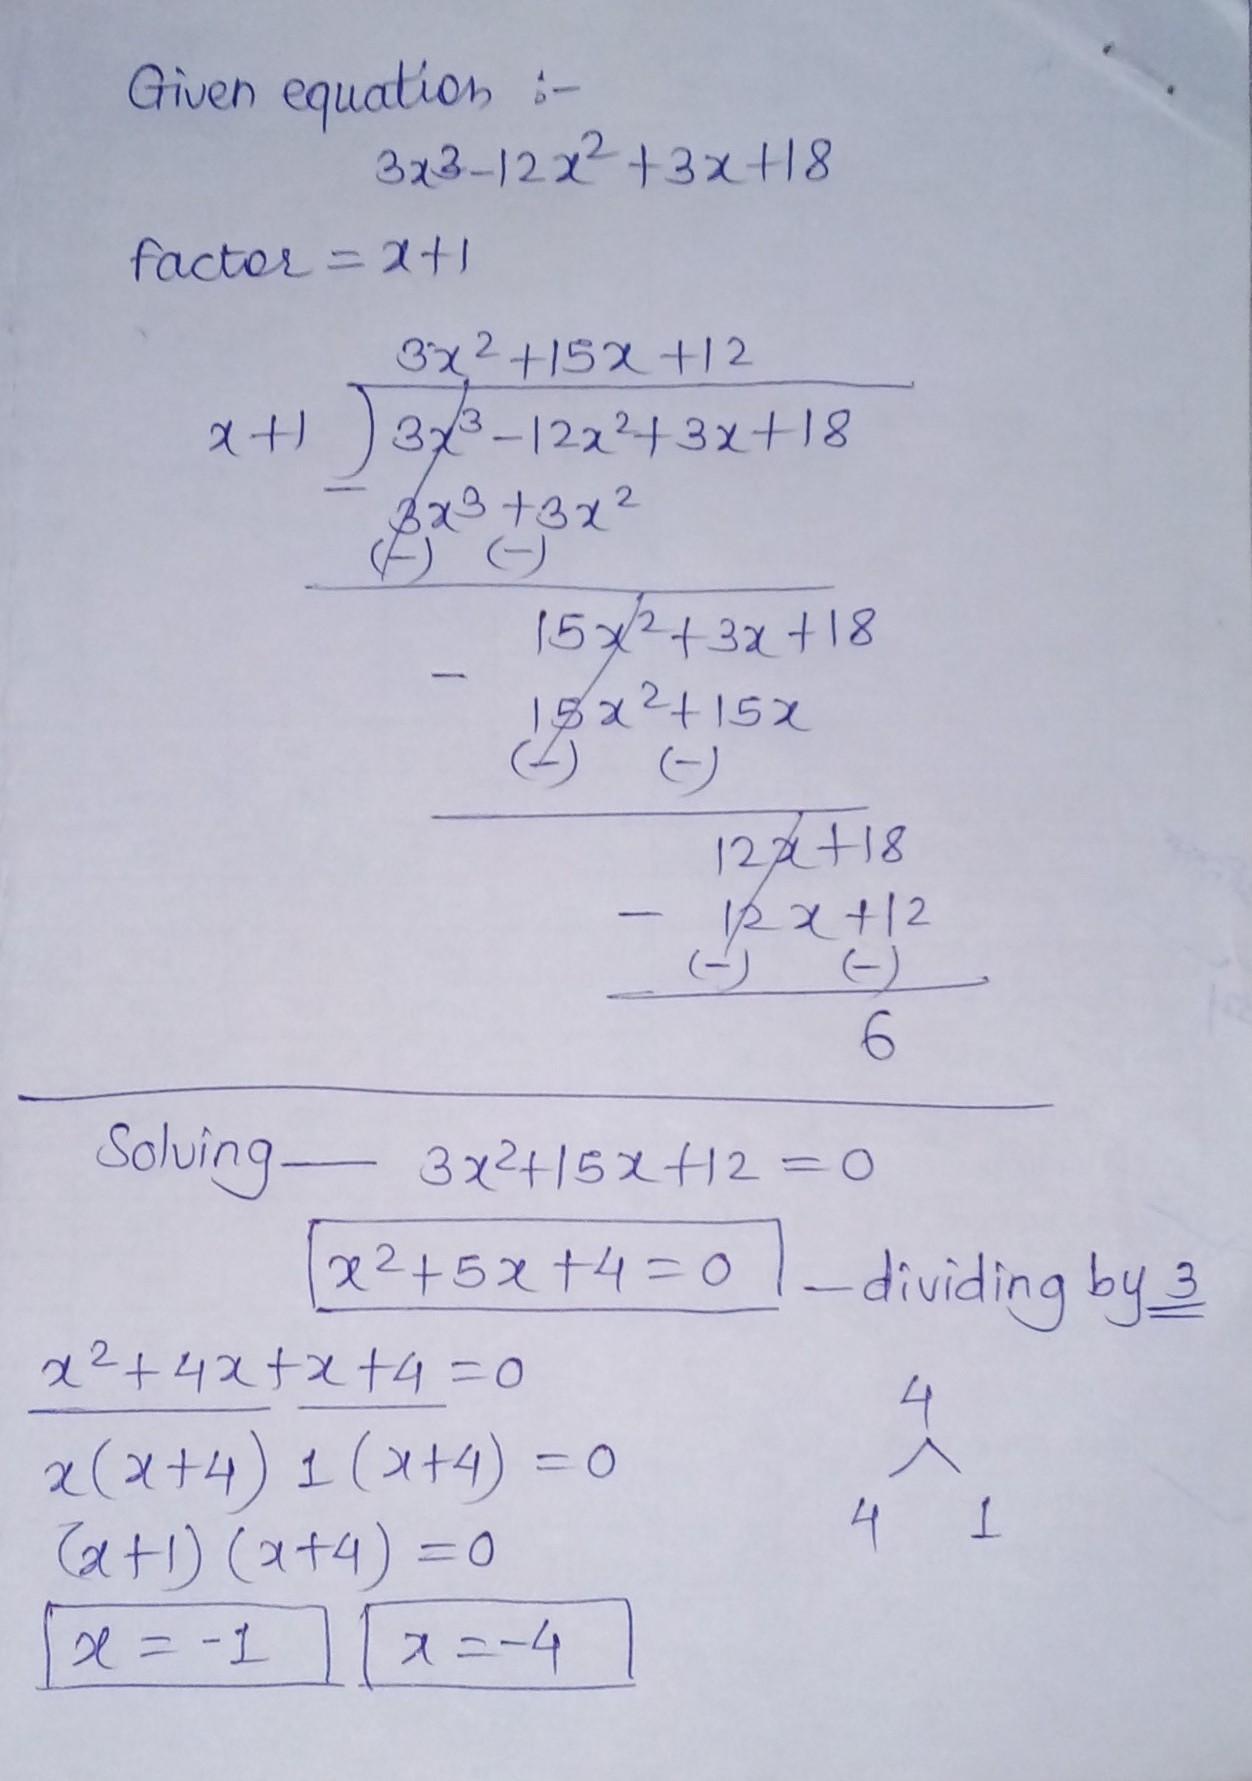 Given equation :-
3x3-12x²+3x+18
factor = x+1
3x²+15x+12
x+1 ) 3x³-12x²+3x+18
- 3x³+3x²
(-) (-)
15x²+3x+18
- 15x²+15x
(-) (-)
12x+18
- 12x+12
(-) (-)
6
Solving — 3x²+15x+12=0
x²+5x+4=0 - dividing by 3
x²+4x+x+4=0
x(x+4) 1(x+4)=0
(x+1)(x+4)=0
x=-1 x=-4
4
4 1